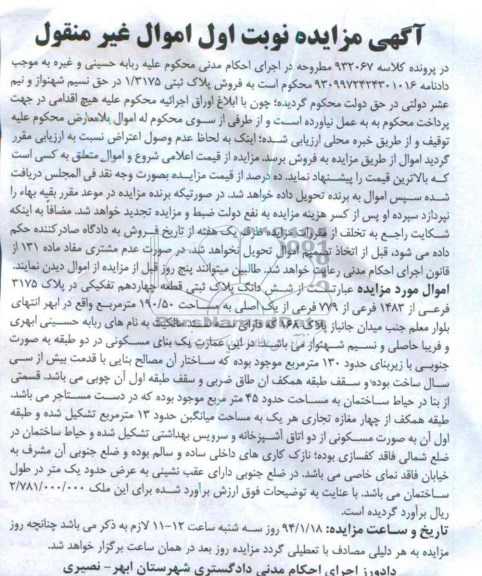 آگهی مزایده نوبت اول اموال غیر منقول
در پرونده کلاسه ۹۳۲۰۶۷ مطروحه در اجرای احکام مدنی محکوم علیه ربابه حسینی و غیره به موجب
دادنامه ۹۳۰۹۹۷۲۴۲۴۳۰۱۰۱۶ محکوم است به فروش پلاک ثبتی ۱/۳۱۷۵ در حق نسیم شهنواز و نیم
عشر دولتی در حق دولت محکوم گردیده؛ چون با ابلاغ اوراق اجرائیه محکوم علیه هیچ اقدامی در جهت
پرداخت محکوم به به عمل نیاورده است و از طرفی از سوی محکوم له اموال بلامعارض محکوم علیه
توقیف و از طریق خبره محلی ارزیابی شده؛ اینک به لحاظ عدم وصول اعتراض نسبت به ارزیابی مقرر
گردید اموال از طریق مزایده به فروش برسد. مزایده از قیمت اعلامی شروع و اموال متعلق به کسی است
که بالاترین قیمت را پیشنهاد نماید. ده درصد از قیمت مزایده بصورت وجه نقد فی المجلس دریافت
شده سپس اموال به برنده تحویل داده خواهد شد. در صورتیکه برنده مزایده در موعد مقرر بقیه بهاء را
نپردازد سپرده او پس از کسر هزینه مزایده به نفع دولت ضبط و مزایده تجدید خواهد شد. مضافاً به اینکه
شکایت راجع به تخلف از مقررات مزایده ظرف یک هفته از تاریخ فروش به دادگاه صادرکننده حکم
داده می شود، قبل از اتخاذ تصمیم اموال تحویل نخواهد شد. در صورت عدم مشتری مفاد ماده ۱۳۱ از
قانون اجرای احکام مدنی رعایت خواهد شد. طالبین میتوانند پنج روز قبل از مزایده از اموال دیدن نمایند.
اموال مورد مزایده عبارتست از شش دانگ پلاک ثبتی قطعه چهاردهم تفکیکی در پلاک ۳۱۷۵
فرعی از ۱۴۸۳ فرعی از ۷۷۹ فرعی از یک اصلی به مساحت ۱۹۰/۵۰ مترمربع واقع در ابهر انتهای
بلوار معلم جنب میدان جانباز پلاک ۱۶۸ که دارای سند مالکیت به نام های ربابه حسینی ابهری
و فریبا حاصلی و نسیم شهنواز می باشد. در این عمارت یک بنای مسکونی در دو طبقه به صورت
جنوبی با زیربنای حدود ۱۳۰ مترمربع موجود بوده که ساختار آن مصالح بنایی با قدمت بیش از سی
سال ساخت بوده و سقف طبقه همکف ان طاق ضربی و سقف طبقه اول آن چوبی می باشد. قسمتی
از بنا در حیاط ساختمان به مساحت حدود ۴۵ متر مربع موجود بوده که در دست مستاجر می باشد.
طبقه همکف از چهار مغازه تجاری هر یک به مساحت میانگین حدود ۱۳ مترمربع تشکیل شده و طبقه
اول آن به صورت مسکونی از دو اتاق آشپزخانه و سرویس بهداشتی تشکیل شده و حیاط ساختمان در
ضلع شمالی فاقد کفسازی بوده؛ نازک کاری های داخلی ساده و سالم بوده و ضلع جنوبی آن مشرف به
خیابان فاقد نمای خاصی می باشد. در ضلع جنوبی دارای عقب نشینی به عرض حدود یک متر در طول
ساختمان می باشد. با عنایت به توضیحات فوق ارزش برآورد شده برای این ملک ۲/۷۸۱/۰۰۰/۰۰۰
ریال برآورد گردیده است.
تاریخ و ساعت مزایده: ۹۴/۱/۱۸ روز سه شنبه ساعت ۱۲-۱۱ لازم به ذکر می باشد چنانچه روز
مزایده به هر دلیلی مصادف با تعطیلی گردد مزایده روز بعد در همان ساعت برگزار خواهد شد.
دادورز اجرای احکام مدنی دادگستری شهرستان ابهر - نصیری